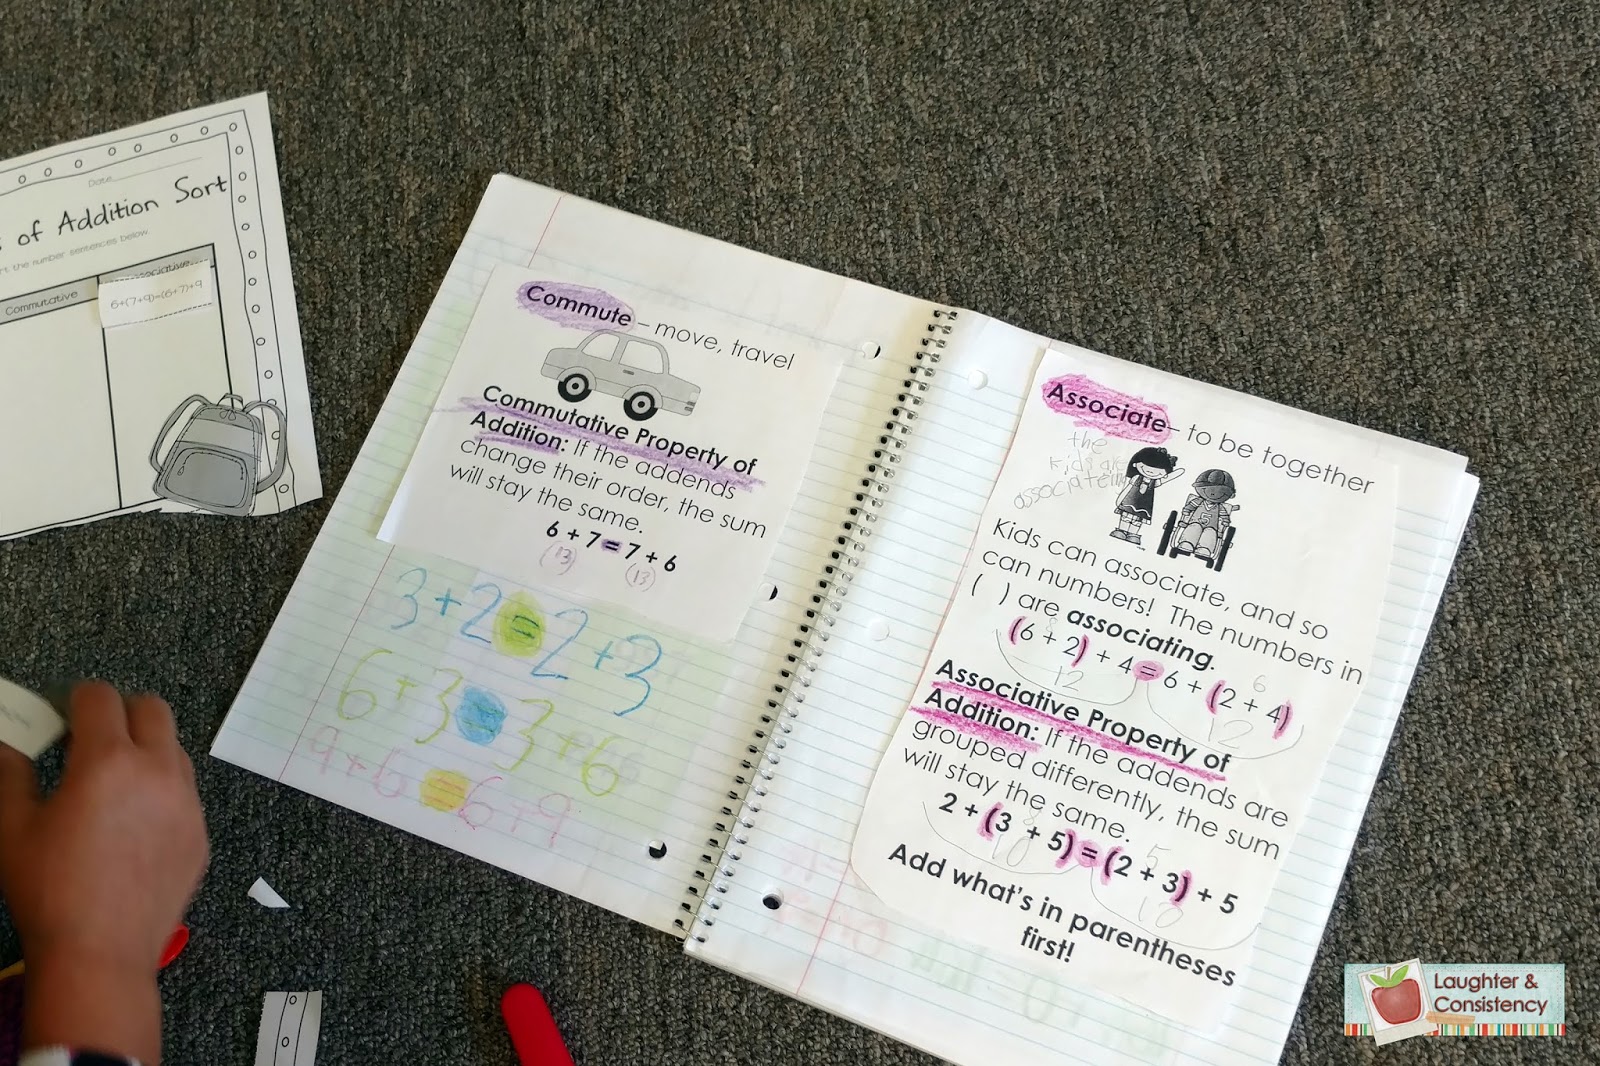 Date
s of Addition Sort
rt the number sentences below.
Commutative
Associative
6+(7+9)=(6+7)+9
Commute – move, travel
Commutative Property of
Addition: If the addends
change their order, the sum
will stay the same.
6 + 7 = 7 + 6
(13) (13)
3+2=2+3
6+3=3+6
9+6=6+9
Associate – to be together
the
kids are
associating
Kids can associate, and so
can numbers! The numbers in
( ) are associating.
8 6
(6 + 2) + 4 = 6 + (2 + 4)
12 12
Associative Property of
Addition: If the addends are
grouped differently, the sum
will stay the same.
8 5
2 + (3 + 5) = (2 + 3) + 5
10 10
Add what's in parentheses
first!
Laughter &
Consistency